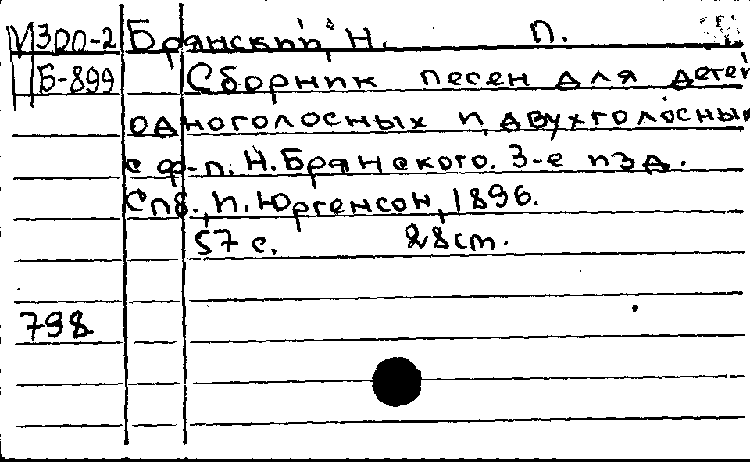 М300-2 Брянский, Н. п.
Б-899 Сборник песен для детей
одноголосных и двухголосных
с ф-п. Н. Брянского. 3-е изд.
Спб., И. Юргенсон, 1896.
57 с. 28 cm.
798